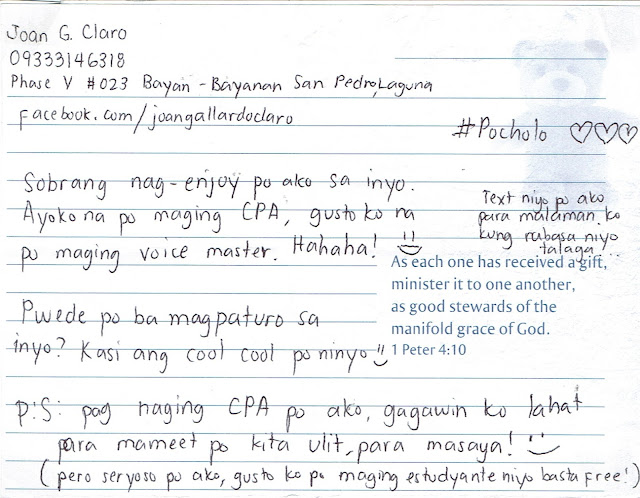 Joan G. Claro
09333146318
Phase V #023 Bayan - Bayanan San Pedro, Laguna
facebook.com/joangallardoclaro
#Pocholo ♡♡♡
Sobrang nag-enjoy po ako sa inyo.
Ayoko na po maging CPA, gusto ko na
po maging voice master. Hahaha!
Text niyo po ako
para malaman ko
kung nabasa niyo
talaga...
As each one has received a gift,
minister it to one another,
as good stewards of the
manifold grace of God.
1 Peter 4:10
Pwede po ba magpaturo sa
inyo? Kasi ang cool cool po ninyo
P.S: pag naging CPA po ako, gagawin ko lahat
para mameet po kita ulit, para masaya!
(pero seryoso po ako, gusto ko po maging estudyante niyo basta free!)